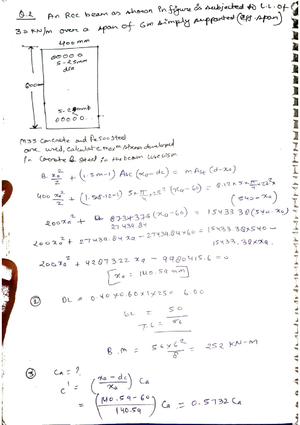 Q.2 An Rcc beam as shown in figure is subjected to L.L. of
3= KN/m over a span of 6m simply supported (Eff. span)
400mm
00000
5-25mm
dia
600
5-28mmφ
00000
M35 Concrete and Fe500 Steel
are used, calculate max^m stress developed
in concrete & steel in the beam use WSM
B x_a²/2 + (1.5m-1) Asc (x_a-dc) = m Ast (d-x_a)
400 x_a²/2 + (1.5×8.12-1) 5×π/4×25² (x_a-60) =
(540-x_a)
200x_a² + (x_a-60) = 15433.38(540-x_a)
27439.84
200x_a² + 27439.84 x_a - 27439.84×60 = 15433.38×540 -
15433.38×x_a
200x_a² + 42873.22 x_a - 9980415.6 = 0
x_a = 140.59 mm
② DL = 0.40×0.60×1×25 = 6.00
LL = 50
T.L = 56
B.M = 56×6²/8 = 252 KN-M
③ Ca = ?
c' = (x_a - dc / x_a) Ca
= (140.59-60 / 140.59) Ca = 0.5732 Ca